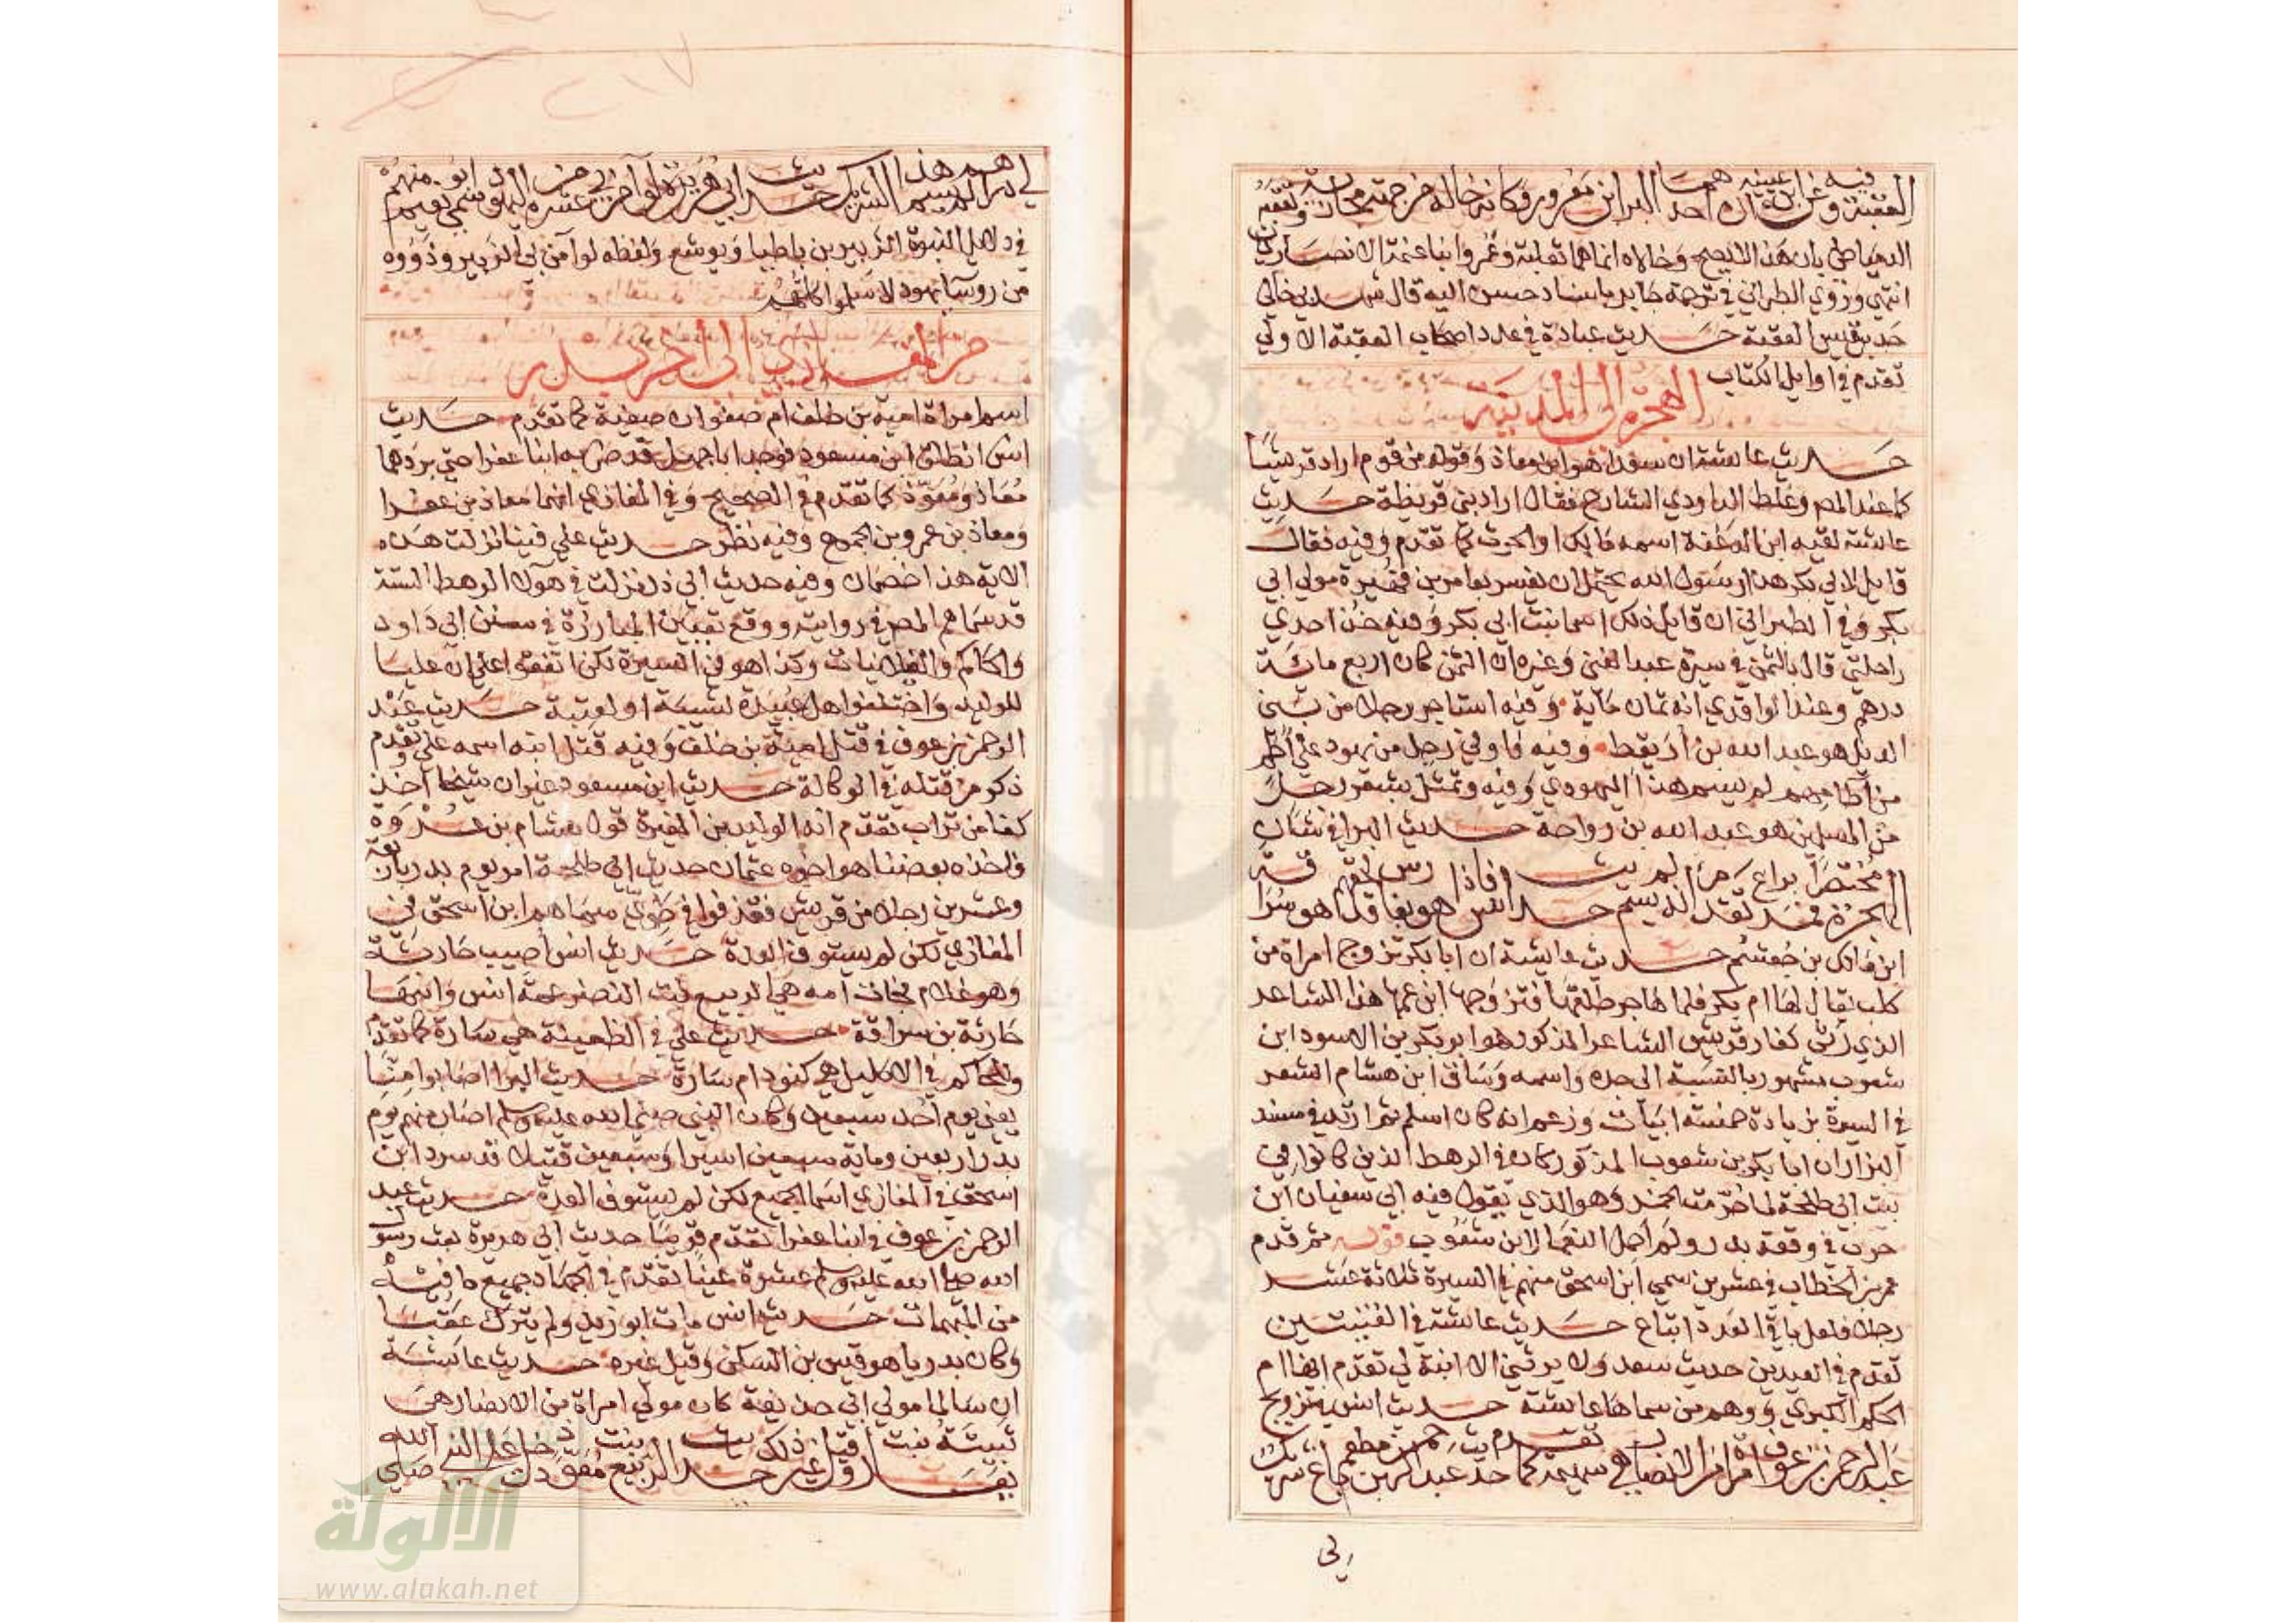 العقبة وعن ابن عيينة قال احدهما البرا بن معرور وكانه خاله من جهة مجازية وتعقبه
الدمياطي بان هذا لا يصح وخالاه انما هما ثعلبة وعمرو ابنا عنمة الانصاريان
انتهى وروى الطبراني في ترجمة جابر باسناد حسن اليه قال شهد بي خالي
جد بن قيس العقبة حديث عبادة في عدد اصحاب العقبة الاولى
تقدم في اوايل الكتاب الهجرة الى المدينة
حديث عايشة ان سعدا هو ابن معاذ وقوله من قوم اراد قريشا
كما عند المص وغلط الداودي الشارح فقال اراد بني قريظة حديث
عايشة لقيه ابن الدغنة اسمه مالك او الحرث كما تقدم وفيه فقال
قايل لابي بكر هذا رسول الله يحتمل ان يفسر بعامر بن فهيرة مولى ابي
بكر وفي الطبراني ان قايل ذلك اسما بنت ابي بكر وفيه خذ احدى
راحلتي قال بالثمن في سيرة عبد الغني وغيره ان الثمن كان اربع مائة
درهم وعند الواقدي انه ثمان ماية وفيه استاجر رجلا من بني
الديل هو عبد الله بن اريقط وفيه فاوفى رجل من يهود على اطم
من آطامهم لم يسم هذا اليهودي وفيه وتمثل بشعر رجل
من المسلمين هو عبد الله بن رواحة حديث البرا في شان
الهجرة مختصرا فمر براع تقدم انه لم يسم حديث انس فاذا هو بفارس لحقهم هو سراقة
ابن مالك بن جعشم حديث عايشة ان ابا بكر تزوج امراة من
كلب يقال لها ام بكر فلما هاجر طلقها فتزوجها ابن عمها هذا الشاعر
الذي رثى كفار قريش الشاعر المذكور هو ابو بكر بن الاسود ابن
شعوب مشهور بالنسبة الى جده واسمه وساق ابن هشام الشعر
في السيرة بزيادة خمسة ابيات وزعم انه كان اسلم ثم ارتد في مسند
البزار ان ابا بكر بن شعوب المذكور كان في الرهط الذين كانوا في
بيت ابي طلحة لما حرمت الخمر وهو الذي يقول فيه ابي سفيان ابن
حرب في وقعة بدر ولم احمل النعما لابن شعوب قوله ثم قدم
عمر بن الخطاب في عشرين سمى ابن اسحق منهم في السيرة ثلاثة عشر
رجلا فلعل باقي العدد اتباع حديث عايشة في القينتين
تقدم في العيدين حديث سعد ولا يرثني الا ابنة لي تقدم انها ام
الحكم الكبرى ووهم من سماها عايشة حديث انس بتزويج
عبد الرحمن بن عوف امراة من الانصار هي سهيمة كما تقدم حديث عبد الرحمن بن مطعم باع شريك
لي
لي دراهم لم يسم هذا الشريك حديث ابي هريرة لو آمن بي عشرة من اليهود سمى منهم ابو نعيم
في دلايل النبوة الزبير بن باطيا ويوشع ولفظه لو آمن بي الزبير وذووه
من روسا يهود لاسلموا كلهم
من المغازي الى آخر بدر
اسم امراة امية بن خلف ام صفوان صفية كما تقدم حديث
انس انطلق ابن مسعود فوجد ابا جهل قد ضربه ابنا عفرا حتى برد هما
معاذ ومعوذ كما تقدم في الصحيح وفي المغازي انهما معاذ بن عفرا
ومعاذ بن عمرو بن الجموح وفيه نظر حديث علي فينا نزلت هذه
الاية هذان خصمان وفيه حديث ابي ذر نزلت في هولا الرهط الستة
قد سماهم المص في رواية ووقع تعيين المبارزة في سنن ابي داود
والحاكم والغيلانيات وكذا هو في السيرة لكن اتفقوا على ان عليا
للوليد واختلفوا هل عبيدة لشيبة او لعتبة حديث عبد
الرحمن بن عوف في قتل امية بن خلف وفيه قتل ابنه اسمه علي وتقدم
ذكر من قتله في الوكالة حديث ابن مسعود غير ان شيخا اخذ
كفا من تراب تقدم انه الوليد بن المغيرة قول هشام بن عروة
فاخذه بعضنا هو اخوه عثمان حديث ابي طلحة امر يوم بدر باربعة
وعشرين رجلا من قريش فقذفوا في طوى سماهم ابن اسحق في
المغازي لكن لم يستوف العدة حديث انس اصيب حارثة
وهو غلام فجات امه هي الربيع بنت النضر عمة انس وابنها
حارثة بن سراقة حديث علي في الظعينة هي سارة كما تقدم
وللحاكم في الاكليل هي كنود ام سارة حديث البرا اصابوا منا
يعني يوم احد سبعين وكان النبي صلى الله عليه وسلم اصاب منهم يوم
بدر اربعين وماية سبعين اسيرا وسبعين قتيلا قد سرد ابن
اسحق في المغازي اسما الجميع لكن لم يستوف العدة حديث عبد
الرحمن بن عوف في ابنا عفرا تقدم قريبا حديث ابي هريرة بعث رسول
الله صلى الله عليه وسلم عشرة عينا تقدم في الجهاد جميع ما فيه
من المبهمات حديث انس مات ابو زيد ولم يترك عقبا
وكان بدريا هو قيس بن السكن وقيل غيره حديث عايشة
ان سالما مولى ابي حذيفة كان مولى امراة من الانصار هي
ثبيتة بنت يعار وقيل غير ذلك حديث الربيع بنت معوذ دخل على النبي صلى الله
الألوكة
www.alukah.net